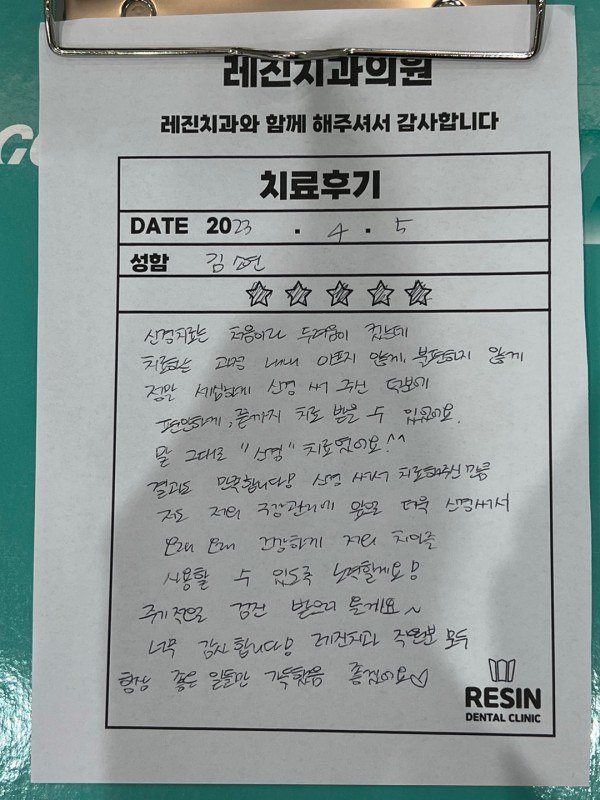 레진치과의원
레진치과와 함께 해주셔서 감사합니다
치료후기
DATE 2023 . 4 . 5
성함 김소연
신경치료는 처음이라 두려움이 컸는데
치료하는 과정 내내 아프지 않게, 불편하지 않게
정말 세심하게 신경 써 주신 덕분에
편안하게, 끝까지 치료 받을 수 있었어요.
말 그대로 "신경" 치료였어요!^^
결과도 만족합니다! 신경 써서 치료해주신만큼
저도 저의 구강관리에 앞으로 더욱 신경써서
오래 오래 건강하게 저의 치아를
사용할 수 있도록 노력할게요!
주기적으로 검진 받으러 올게요~
너무 감사합니다! 레진치과 직원분 모두
항상 좋은 일들만 가득했음 좋겠어요♡
RESIN
DENTAL CLINIC